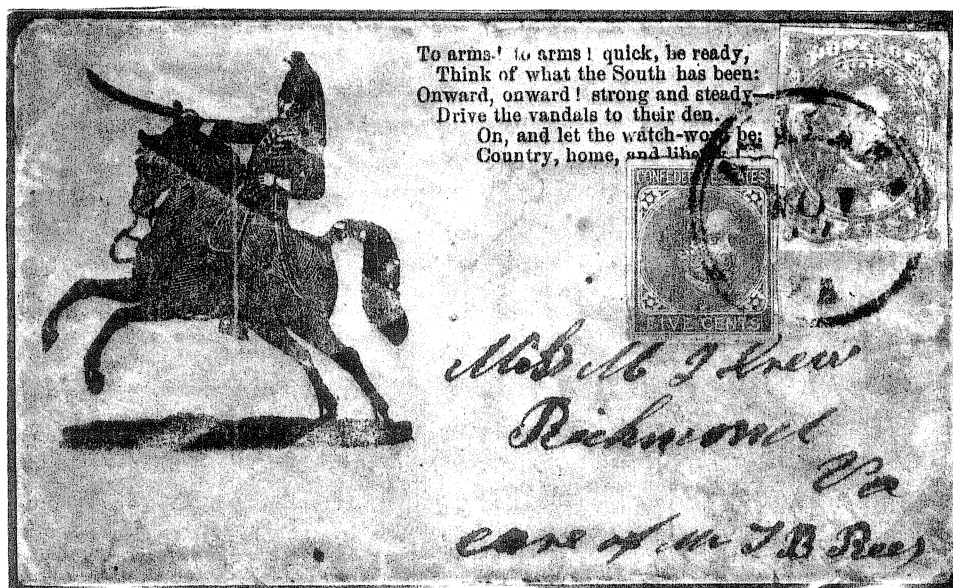 To arms! to arms! quick, be ready,
Think of what the South has been:
Onward, onward! strong and steady—
Drive the vandals to their den.
On, and let the watch-word be:
Country, home, and
CONFEDER TES
FIVE CENTS
M J Drew
Richmond
Va
care of Mr T B Rees